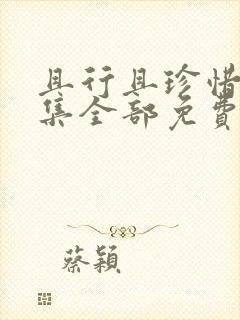 且行且珍惜
集全部免費
蔡穎